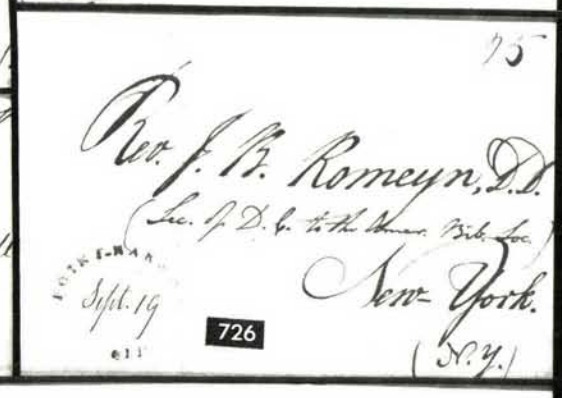 25
Rev. J. B. Romeyn, D.D.
(Sec. of D. C. to the Amer. Bib. Soc.)
New-York.
(N.Y.)
Sept. 19
726